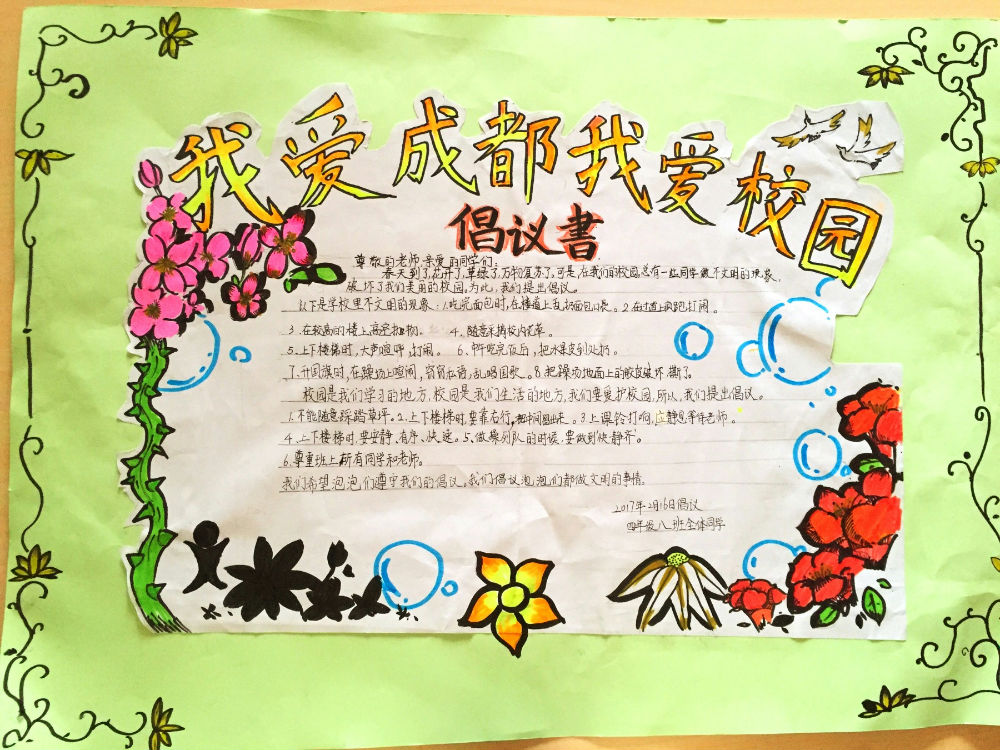 我爱成都我爱校园
倡议书
尊敬的老师,亲爱的同学们:
春天到了,花开了,草绿了,万物复苏了,可是,在我们的校园,总有一些同学做不文明的现象,
破坏了我们美丽的校园,为此,我们提出倡议。
以下是学校里不文明的现象:1.吃完面包时,在楼道上丢扔面包口袋。2.在过道上疯跑打闹。
3.在较高的楼上高空抛物。 4.随意采摘校内花草。
5.上下楼梯时,大声喧哗,打闹。 6.中午吃完饭后,把水果皮到处扔。
7.升国旗时,在操场上喧闹,窃窃私语,乱唱国歌。8.把操场地面上的胶皮破坏、撕了。
校园是我们学习的地方,校园是我们生活的地方,我们要爱护校园,所以,我们提出倡议。
1.不能随意踩踏草坪。2.上下楼梯时,要靠右行,把中间留出来。3.上课铃打响,应静息等待老师。
4.上下楼梯时,要安静、有序、快速。5.做操列队的时候,要做到快、静、齐。
6.尊重班上所有同学和老师。
我们希望泡泡们遵守我们的倡议。我们倡议泡泡们都做文明的事情。
2017年2月16日倡议
四年级八班全体同学